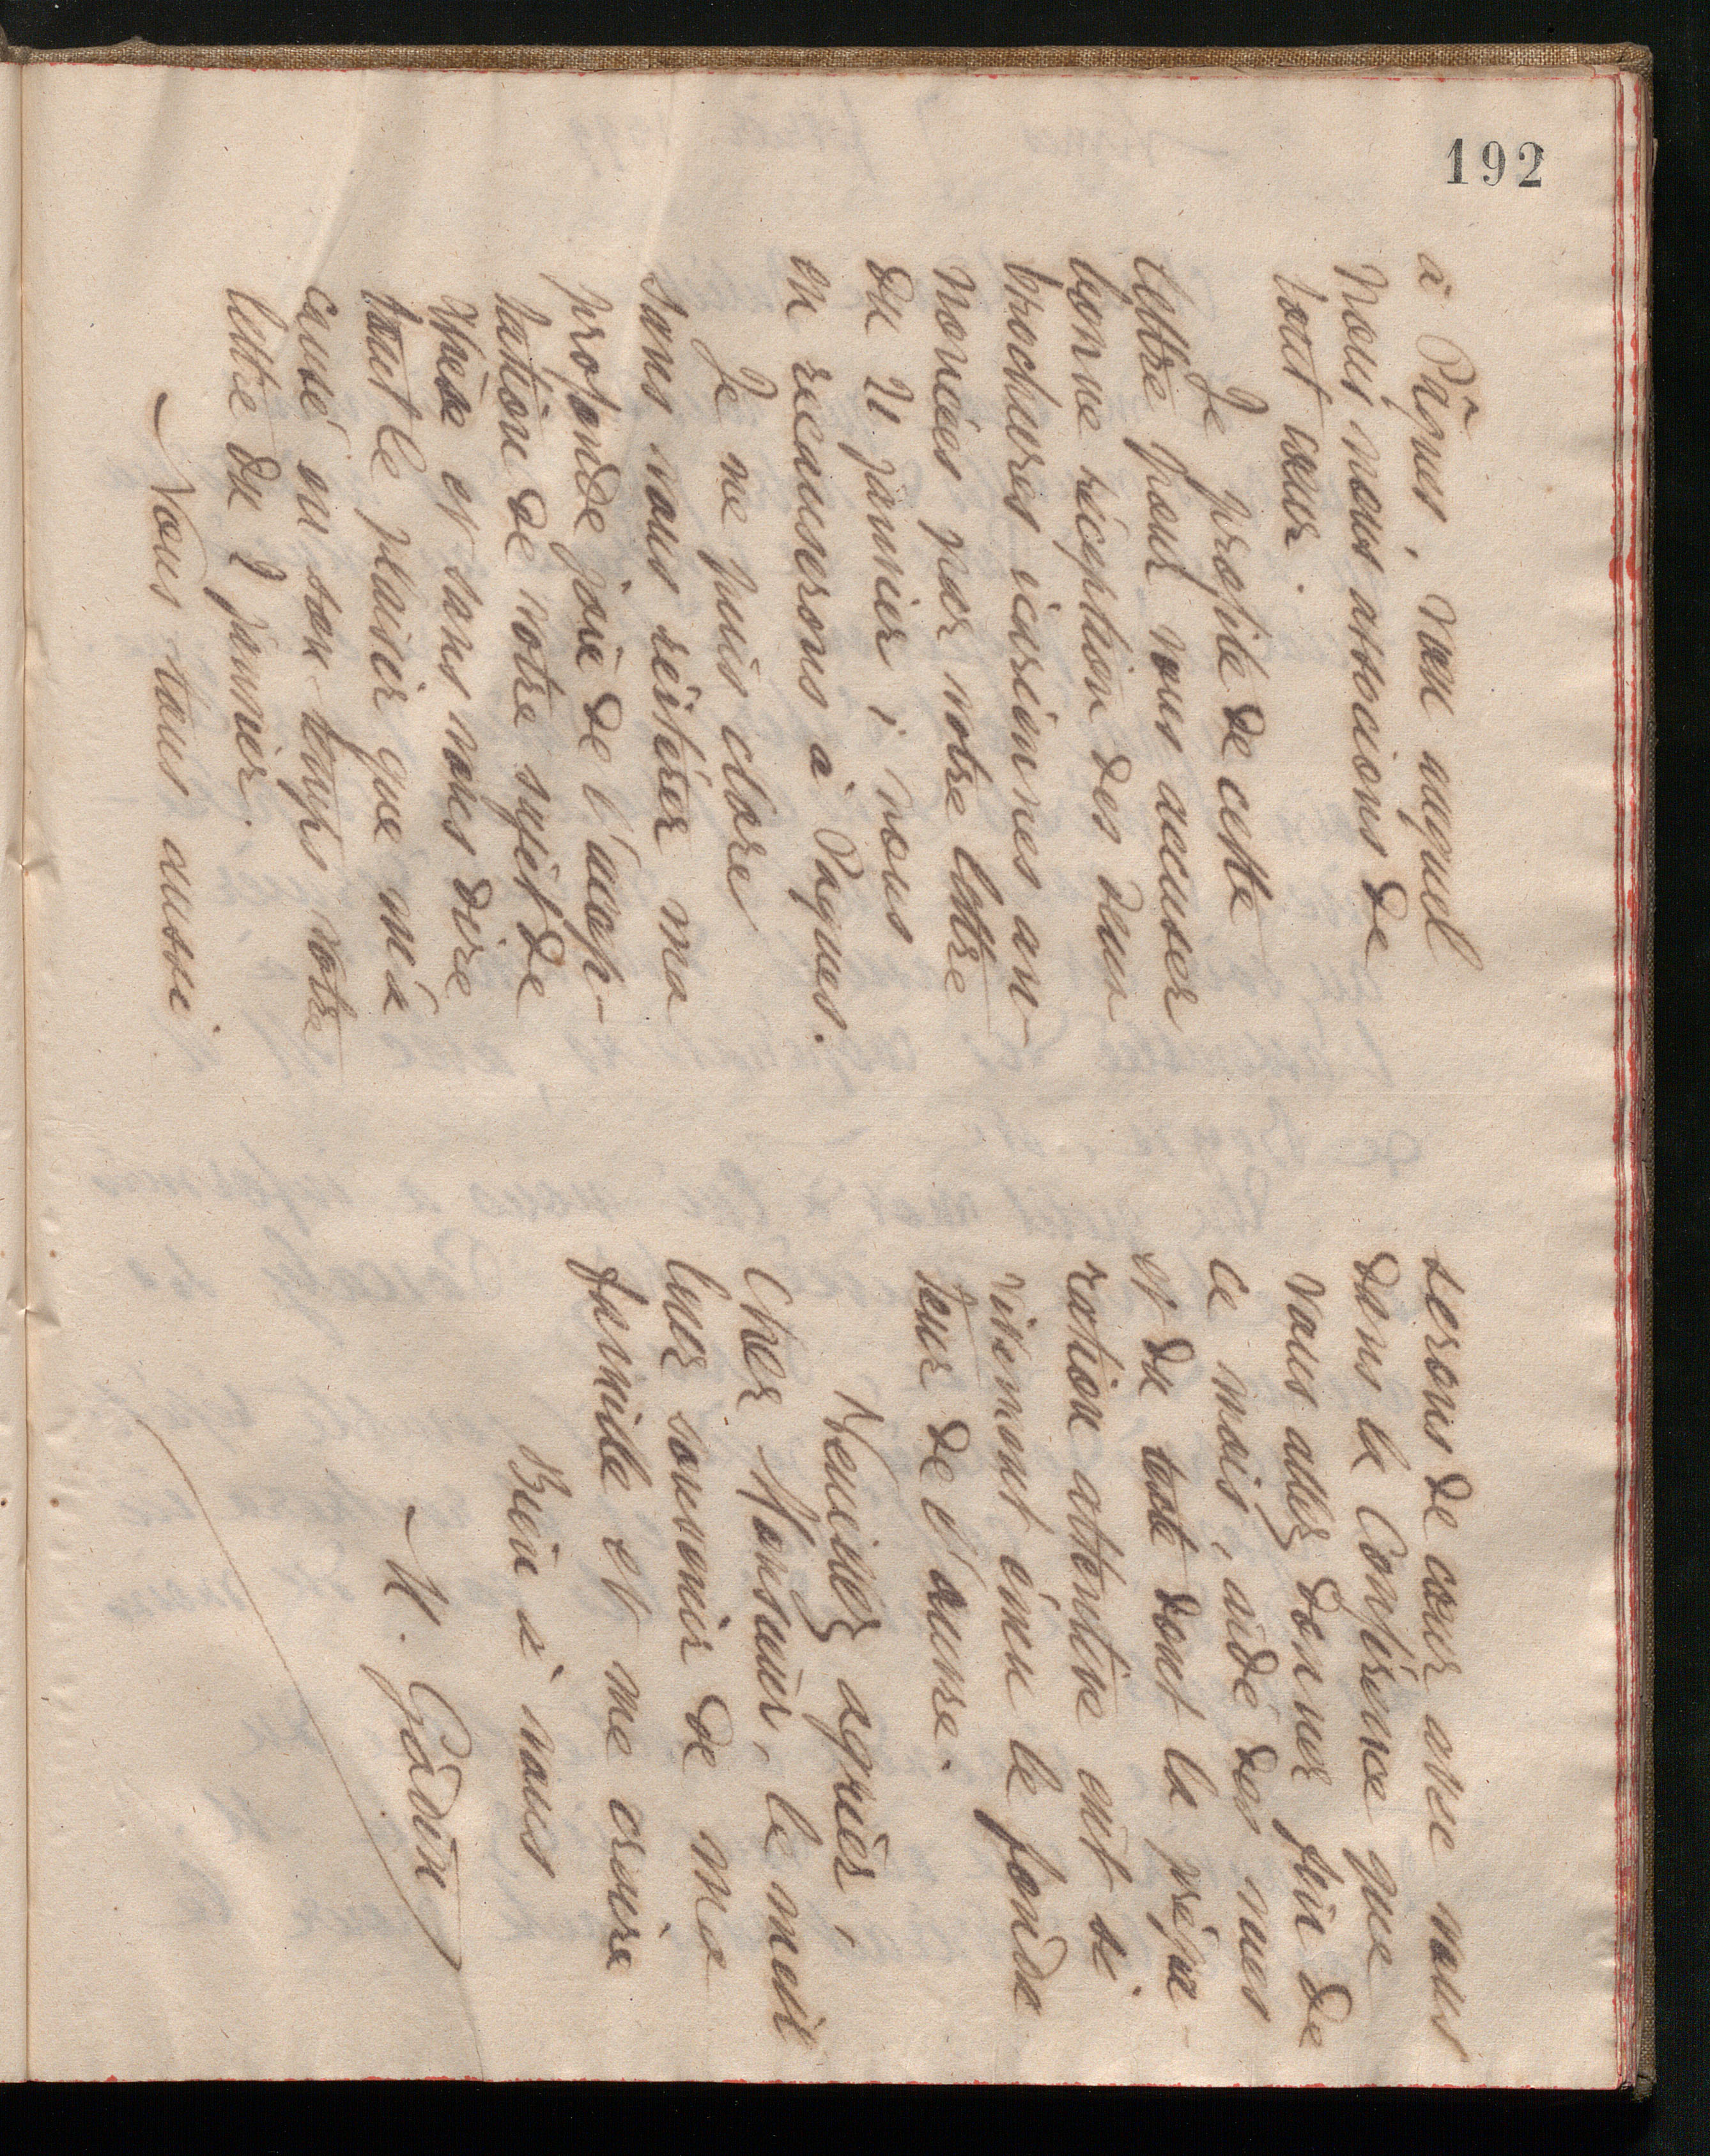 192
à Pâques, vœu auquel
nous nous associons de
tout cœur.
Je profite de cette
lettre pour vous accuser
bonne réception des deux
brochures icariennes an-
noncées par votre lettre
du 21 janvier ; nous
en recauserons à Pâques.
Je ne puis clore
sans vous réitérer ma
profonde joie de l'accep-
tation de votre sujet de
thèse et sans vous dire
tout le plaisir que m'a
causé en son temps votre
lettre du 2 janvier.
Nous tous aussi
serons de cœur avec vous
dans la Conférence que
vous allez donner fin de
ce mois, aidé des vues
et du texte dont la prépa-
ration attentive ont si
vivement ému le fonda-
teur de l'œuvre.
Veuillez agréer,
Cher Monsieur, le meil
leur souvenir de ma
famille et me croire
Bien à vous
M. Godin